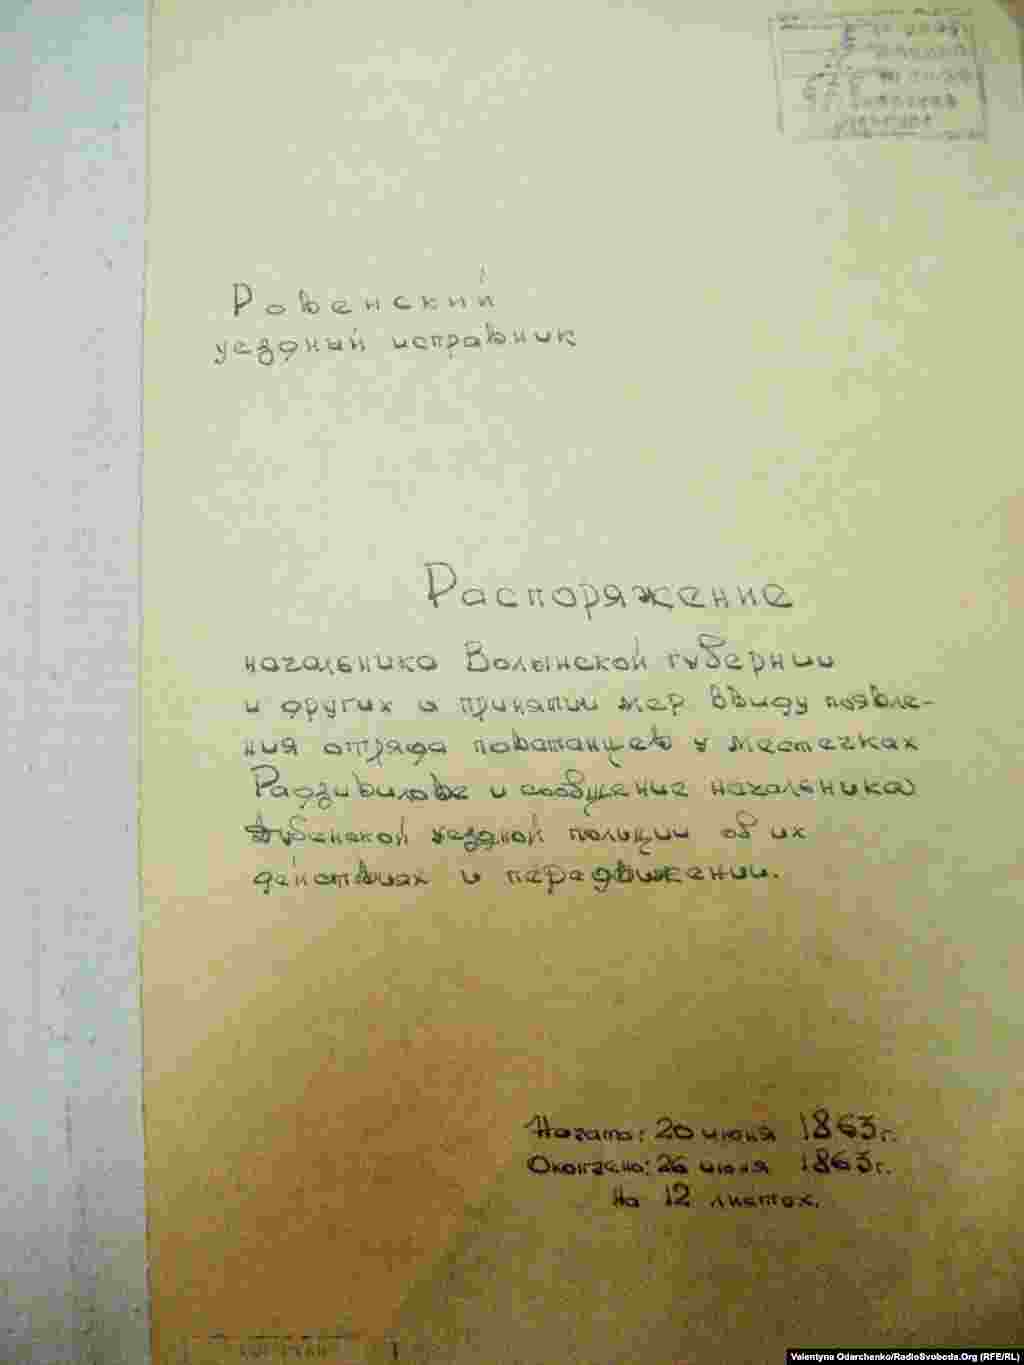 Ровенский
уездний исправник
Распоряжение
начальника Волынской губернии
и других и принятии мер ввиду появле-
ния отряда повстанцев у местечках
Радзивилове и сообщение начальника
Дубенской уездной полиции об их
действиях и передвижении.
Начато: 20 июня 1863 г.
Окончено: 26 июня 1863 г.
На 12 листах.
Valentyna Odarchenko/RadioSvoboda.Org (RFE/RL)